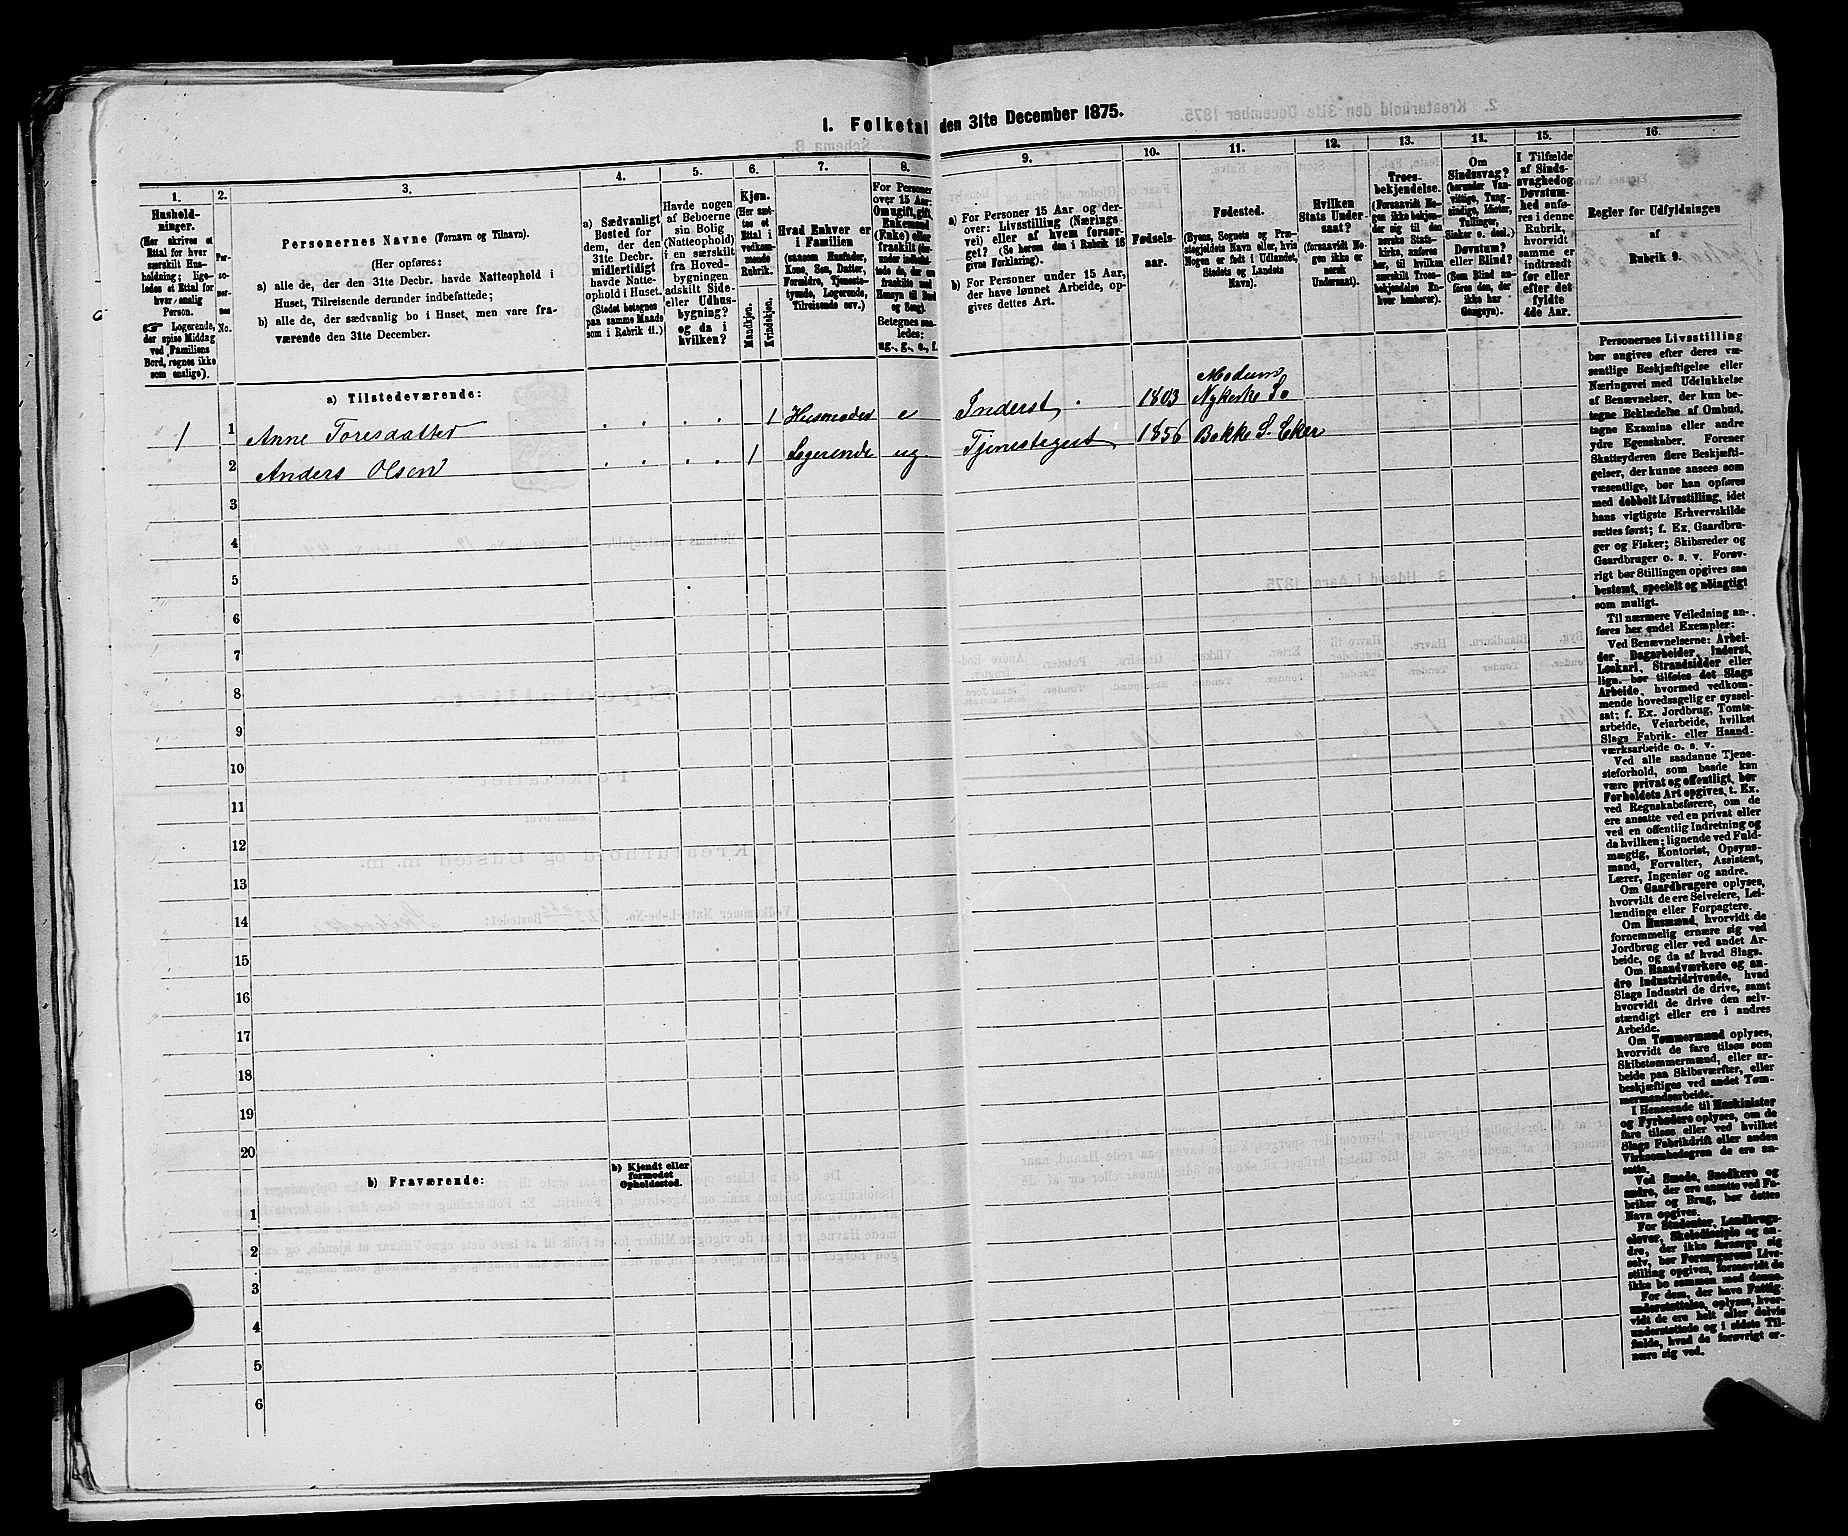 1. Folketal den 31te December 1875.
1.
Hushold-
ninger.
(Her skrives et
Ettal for hver
særskilt Hus-
holdning; lige-
ledes et Ettal for
hver enslig
Person.
☞ Logerende,
der spise Middag
ved Familiens
Bord, regnes ikke
som enslige).
2.
Per-
so-
ner-
nes
No.
3.
Personernes Navne (Fornavn og Tilnavn).
(Her opføres:
a) alle de, der den 31te Decbr. havde Natteophold i
Huset, Tilreisende derunder indbefattede;
b) alle de, der sædvanlig bo i Huset, men vare fra-
værende den 31te December.
4.
a) Sædvanligt
Bosted for
dem, der den
31te Decbr.
midlertidigt
havde Natte-
ophold i Huset.
(Stedet betegnes
paa samme Maade
som i Rubrik 11.)
5.
Havde nogen
af Beboerne
sin Bolig
(Natteophold)
i en særskilt
fra Hoved-
bygningen
adskilt Side-
eller Udhus-
bygning?
og da i
hvilken?
6.
Kjøn.
(Her sæt-
tes et
Ettal i
vedkom-
mende
Rubrik.
Mandkjøn.
Kvindekjøn.
7.
Hvad Enhver er
i Familien
(saasom Husfader,
Kone, Søn, Datter,
Forældre, Tjeneste-
tyende, Logerende,
Tilreisende osv.)
8.
For Personer
over 15 Aar:
Om ugift, gift,
Enkemand
(Enke) eller
fraskilt (der-
under indbefat-
tede de, der ere
fraskilte med
Hensyn til Bord
og Seng).
Betegnes saa-
ledes:
ug., g., e., f.
9.
a) For Personer 15 Aar og der-
over: Livsstilling (Nærings-
vei) eller af hvem forsør-
get? (Se herom den i Rubrik 16
givne Forklaring).
b) For Personer under 15 Aar,
der have lønnet Arbeide, op-
gives dettes Art.
10.
Fødsels-
aar.
11.
Fødested.
(Byens, Sognets og Præ-
stegjeldets Navn eller, hvis
Nogen er født i Udlandet,
Stedets og Landets
Navn).
12.
Hvilken
Stats Under-
saat?
(forsaavidt No-
gen ikke er
norsk
Undersaat).
13.
Troes-
bekjendelse.
(Forsaavidt No-
gen ikke bekjen-
der sig til den
norske Stats-
kirke, anføres
her, til hvilken
særskilt Troes-
bekjendelse En-
hver henhører).
14.
Om
Sindssvag?
(herunder Van-
vittige, Tung-
sindige, Idioter,
Tullinger,
Sinker o. desl.)
Døvstum?
eller Blind?
(Som Blind an-
føres den, der
ikke har
Gangsyn).
15.
I Tilfælde
af Sinds-
svaghed og
Døvstum-
hed anfø-
res i denne
Rubrik,
hvorvidt
samme er
indtraadt
før eller
efter det
fyldte
4de Aar.
16.
Regler for Udfyldningen
af
Rubrik 9.
a) Tilstedeværende:
1 1 Anne Toresdatter 1 Husmoder e Inderst 1803 Modum Nykirke So
2 Anders Olsen 1 Logerende ug Tjenestegut 1856 Bakke S. Eker
3
4
5
6
7
8
9
10
11
12
13
14
15
16
17
18
19
20
b) Fraværende:
b) Kjendt eller
formodet
Opholdssted.
1
2
3
4
5
6
Personernes Livsstilling
bør angives efter deres væ-
sentlige Beskjæftigelse eller
Næringsvei med Udelukkelse
af Benævnelser, der kun be-
tegne Beklædelse af Ombud,
tagne Examina eller andre
ydre Egenskaber. Forener
Skatteyderen flere Beskjæfti-
gelser, der kunne ansees som
væsentlige, bør han opføres
med dobbelt Livsstilling, idet
hans vigtigste Erhvervskilde
sættes først; f. Ex. Gaardbru-
ger og Fisker; Skibsreder og
Gaardbruger o. s. v. Forøv-
rigt bør Stillingen opgives saa
bestemt, specielt og nøiagtigt
som muligt.
Til nærmere Veiledning an-
føres her endel Exempler:
Ved Benævnelserne: Arbei-
der, Dagarbeider, Inderst,
Løskarl, Strandsidder eller
lign. bør tilføies det Slags
Arbeide, hvormed vedkom-
mende hovedsagelig er syssel-
sat; f. Ex. Jordbrug, Tomte-
arbeide, Veiarbeide, hvilket
Slags Fabrik- eller Haand-
værksarbeide o. s. v.
Ved alle saadanne Tjene-
steforhold, som baade kan
være privat og offentligt, bør
Forholdets Art opgives, t. Ex.
ved Regnskabsførere, om de
ere ansatte ved en privat eller
ved en offentlig Indretning og
da hvilken; lignende ved Fuld-
mægtig, Kontorist, Opsyns-
mand, Forvalter, Assistent,
Lærer, Ingeniør og andre.
Om Gaardbrugere oplyses,
hvorvidt de ere Selveiere, Lei-
lændinge eller Forpagtere.
Om Husmænd, hvorvidt de
fornemmelig ernære sig ved
Jordbrug eller ved andet Ar-
beide, og da af hvad Slags.
Om Haandværkere og an-
dre Industridrivende, hvad
Slags Industri de drive, samt
hvorvidt de drive den selv-
stændigt eller ere i andres
Arbeide.
Om Tømmermænd oplyses,
hvorvidt de fare tilsøs som
Skibstømmermænd, eller ar-
beide paa Skibsværfter, eller
beskjæftiges ved andet Tøm-
mermandsarbeide.
I Henseende til Maskinister
og Fyrbødere oplyses, om de
fare tilsøs eller ved hvilket
Slags Fabrikdrift eller anden
Virksomhedsgren de ere an-
satte.
Ved Smede, Snedkere og
andre, der ere ansatte ved Fa-
briker og Brug, bør dettes
Navn opgives.
For Studenter, Landbrugs-
elever, Skoledisciple og an-
dre, der ikke forsørge sig
selv, bør Forsørgerens Livs-
stilling opgives, forsaavidt de
ikke bo sammen med denne.
For dem, der have Fattig-
understøttelse, oplyses, hvor-
vidt de ere helt eller delvis
understøttede og i sidste Til-
fælde, hvad de forøvrigt er-
nære sig ved.